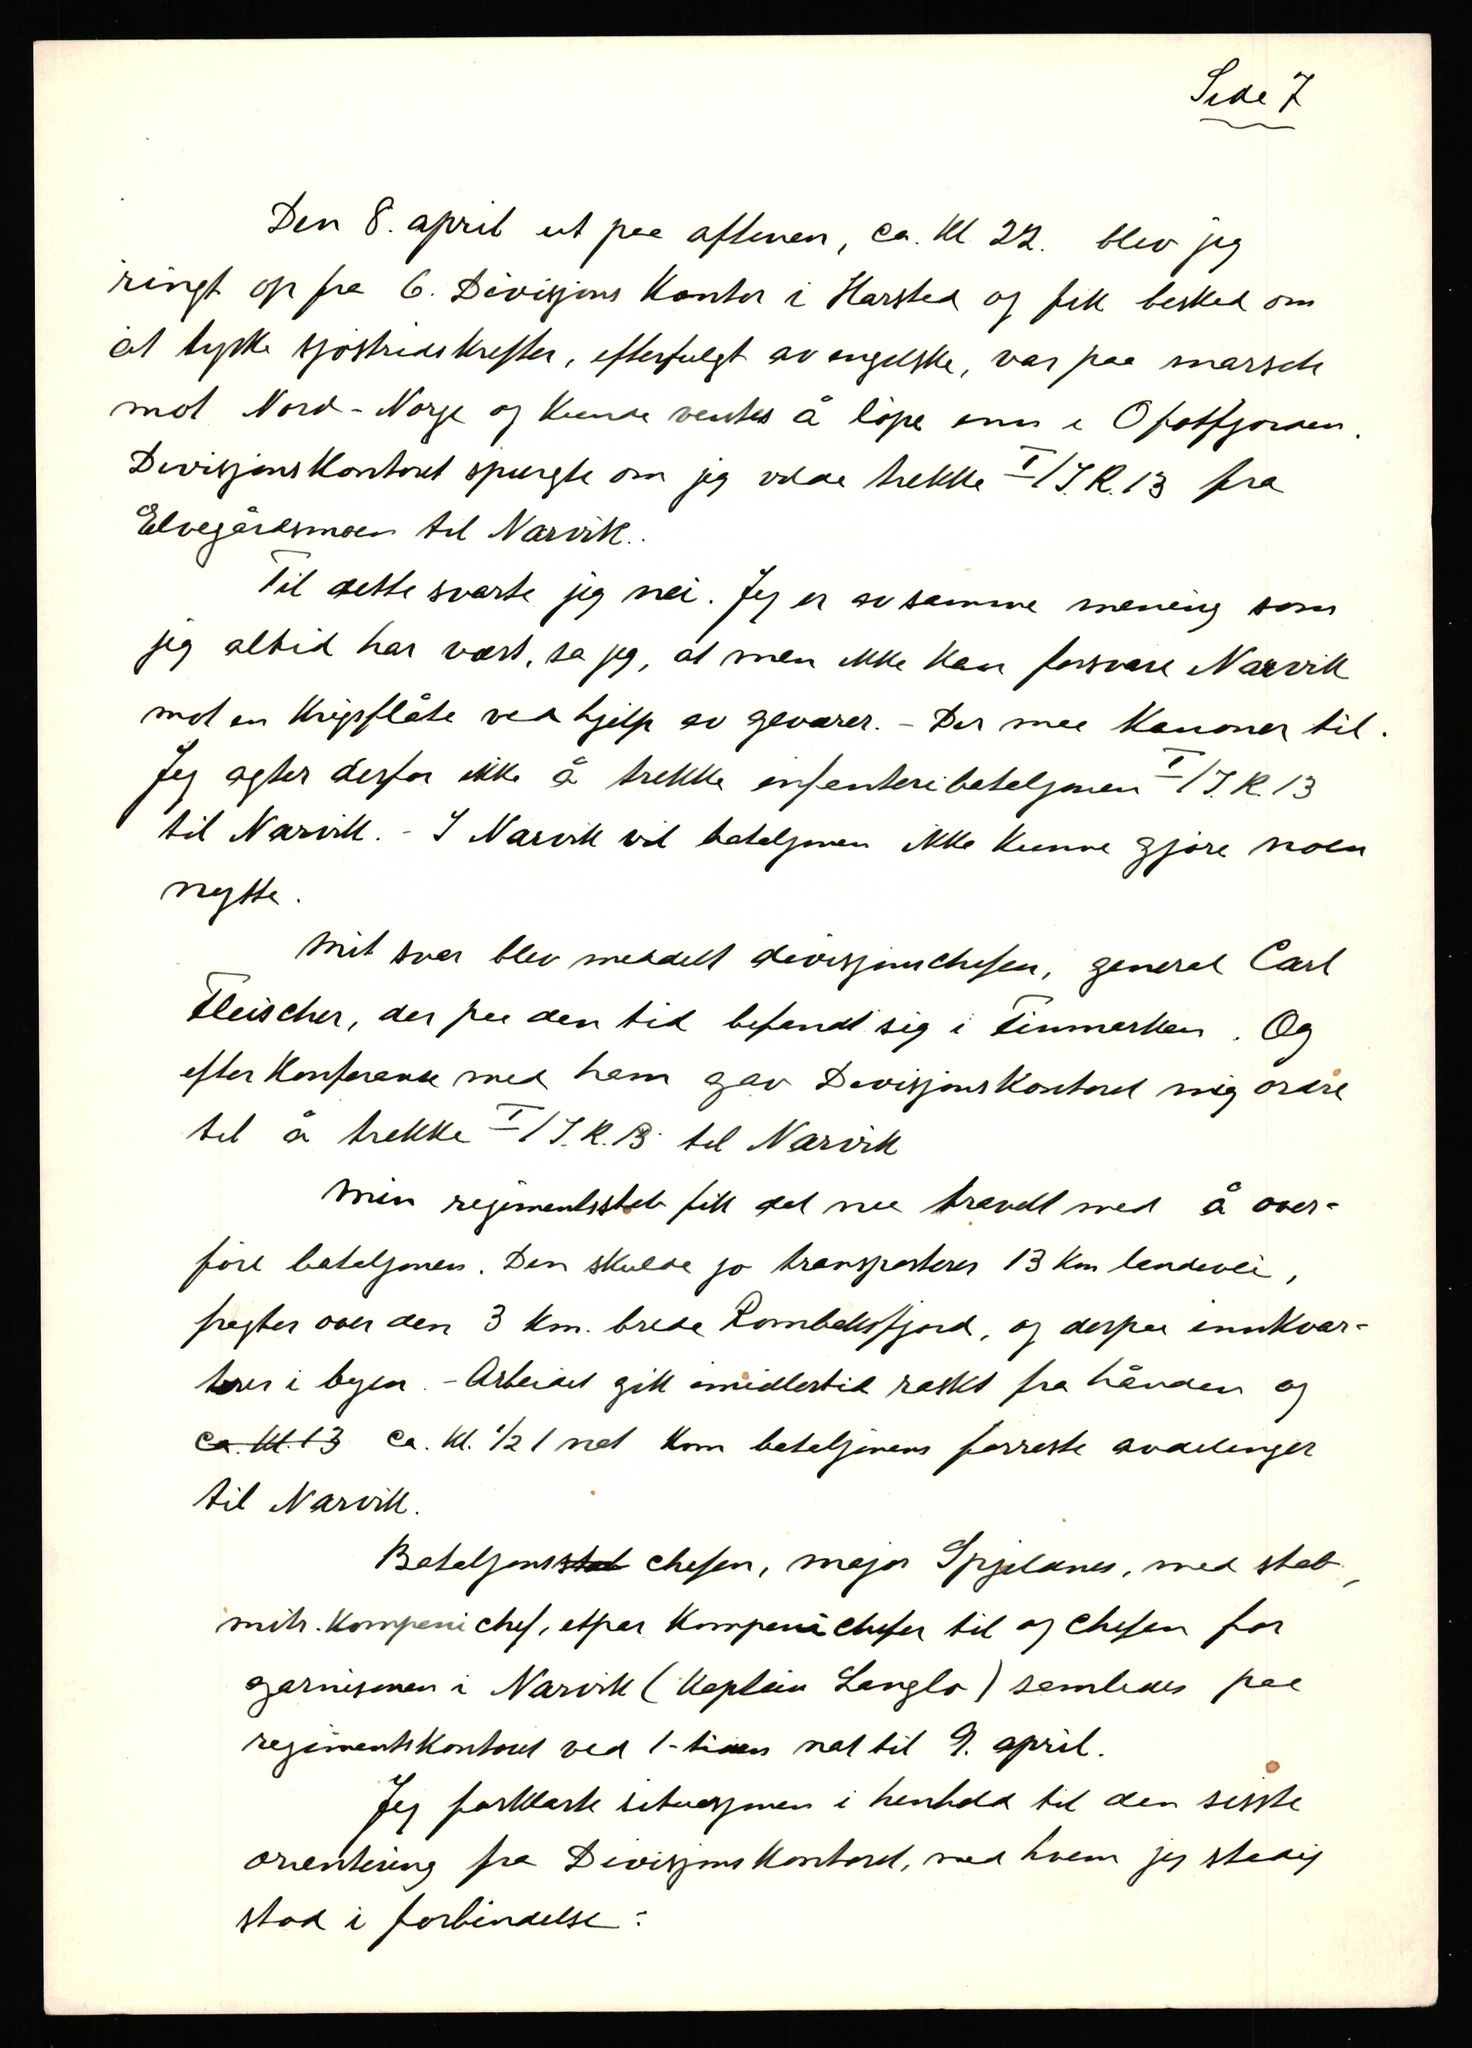 Side 7
Den 8. april ut paa aftenen, ca. kl 22. blev jeg
ringt op fra 6. Divisjons kontor i Harstad og fik besked om
at tyske sjøstridskrefter, efterfulgt av engelske, var paa marsch
mot Nord-Norge og kunde ventes å løpe inn i Ofotfjorden.
Divisjonskontoret spurgte om jeg vilde trekke I/I.R.13 fra
Elvegårdsmoen til Narvik.
Til dette svarte jeg nei. Jeg er av samme mening som
jeg altid har vært, sa jeg, at man ikke kan forsvare Narvik
mot en krigsflåte ved hjelp av geværer. - Der maa kanoner til.
Jeg agter derfor ikke å trekke infanteribataljonen I/I.R.13
til Narvik. - I Narvik vil bataljonen ikke kunne gjøre noen
nytte.
Mit svar blev meddelt divisjonschefen, general Carl
Fleischer, der paa den tid befandt sig i Finmarken. Og
efter konferanse med ham gav Divisjonskontoret mig ordre
til å trekke I/I.R.13 til Narvik
Min regimentsstab fik det naa travelt med å over-
føre bataljonen. Den skulde jo transporteres 13 km landevei,
fragtes over den 3 km. brede Rombaksfjord, og derpaa innkvar-
teres i byen. - Arbeidet gik imidlertid raskt fra hånden og
ca. kl. 13 ca. kl. 1/2 1 nat kom bataljonens forreste avdelinger
til Narvik.
Bataljonsstab chefen, major Spjeldnes, med stab,
mitr. kompanichef, etpar kompanichefer til og chefen for
garnisonen i Narvik (kaptein Langlo) samledes paa
regimentskontoret ved 1-tiden nat til 9. april.
Jeg forklarte situasjonen i henhold til den siste
orientering fra Divisjonskontoret, med hvem jeg stadig
stod i forbindelse: